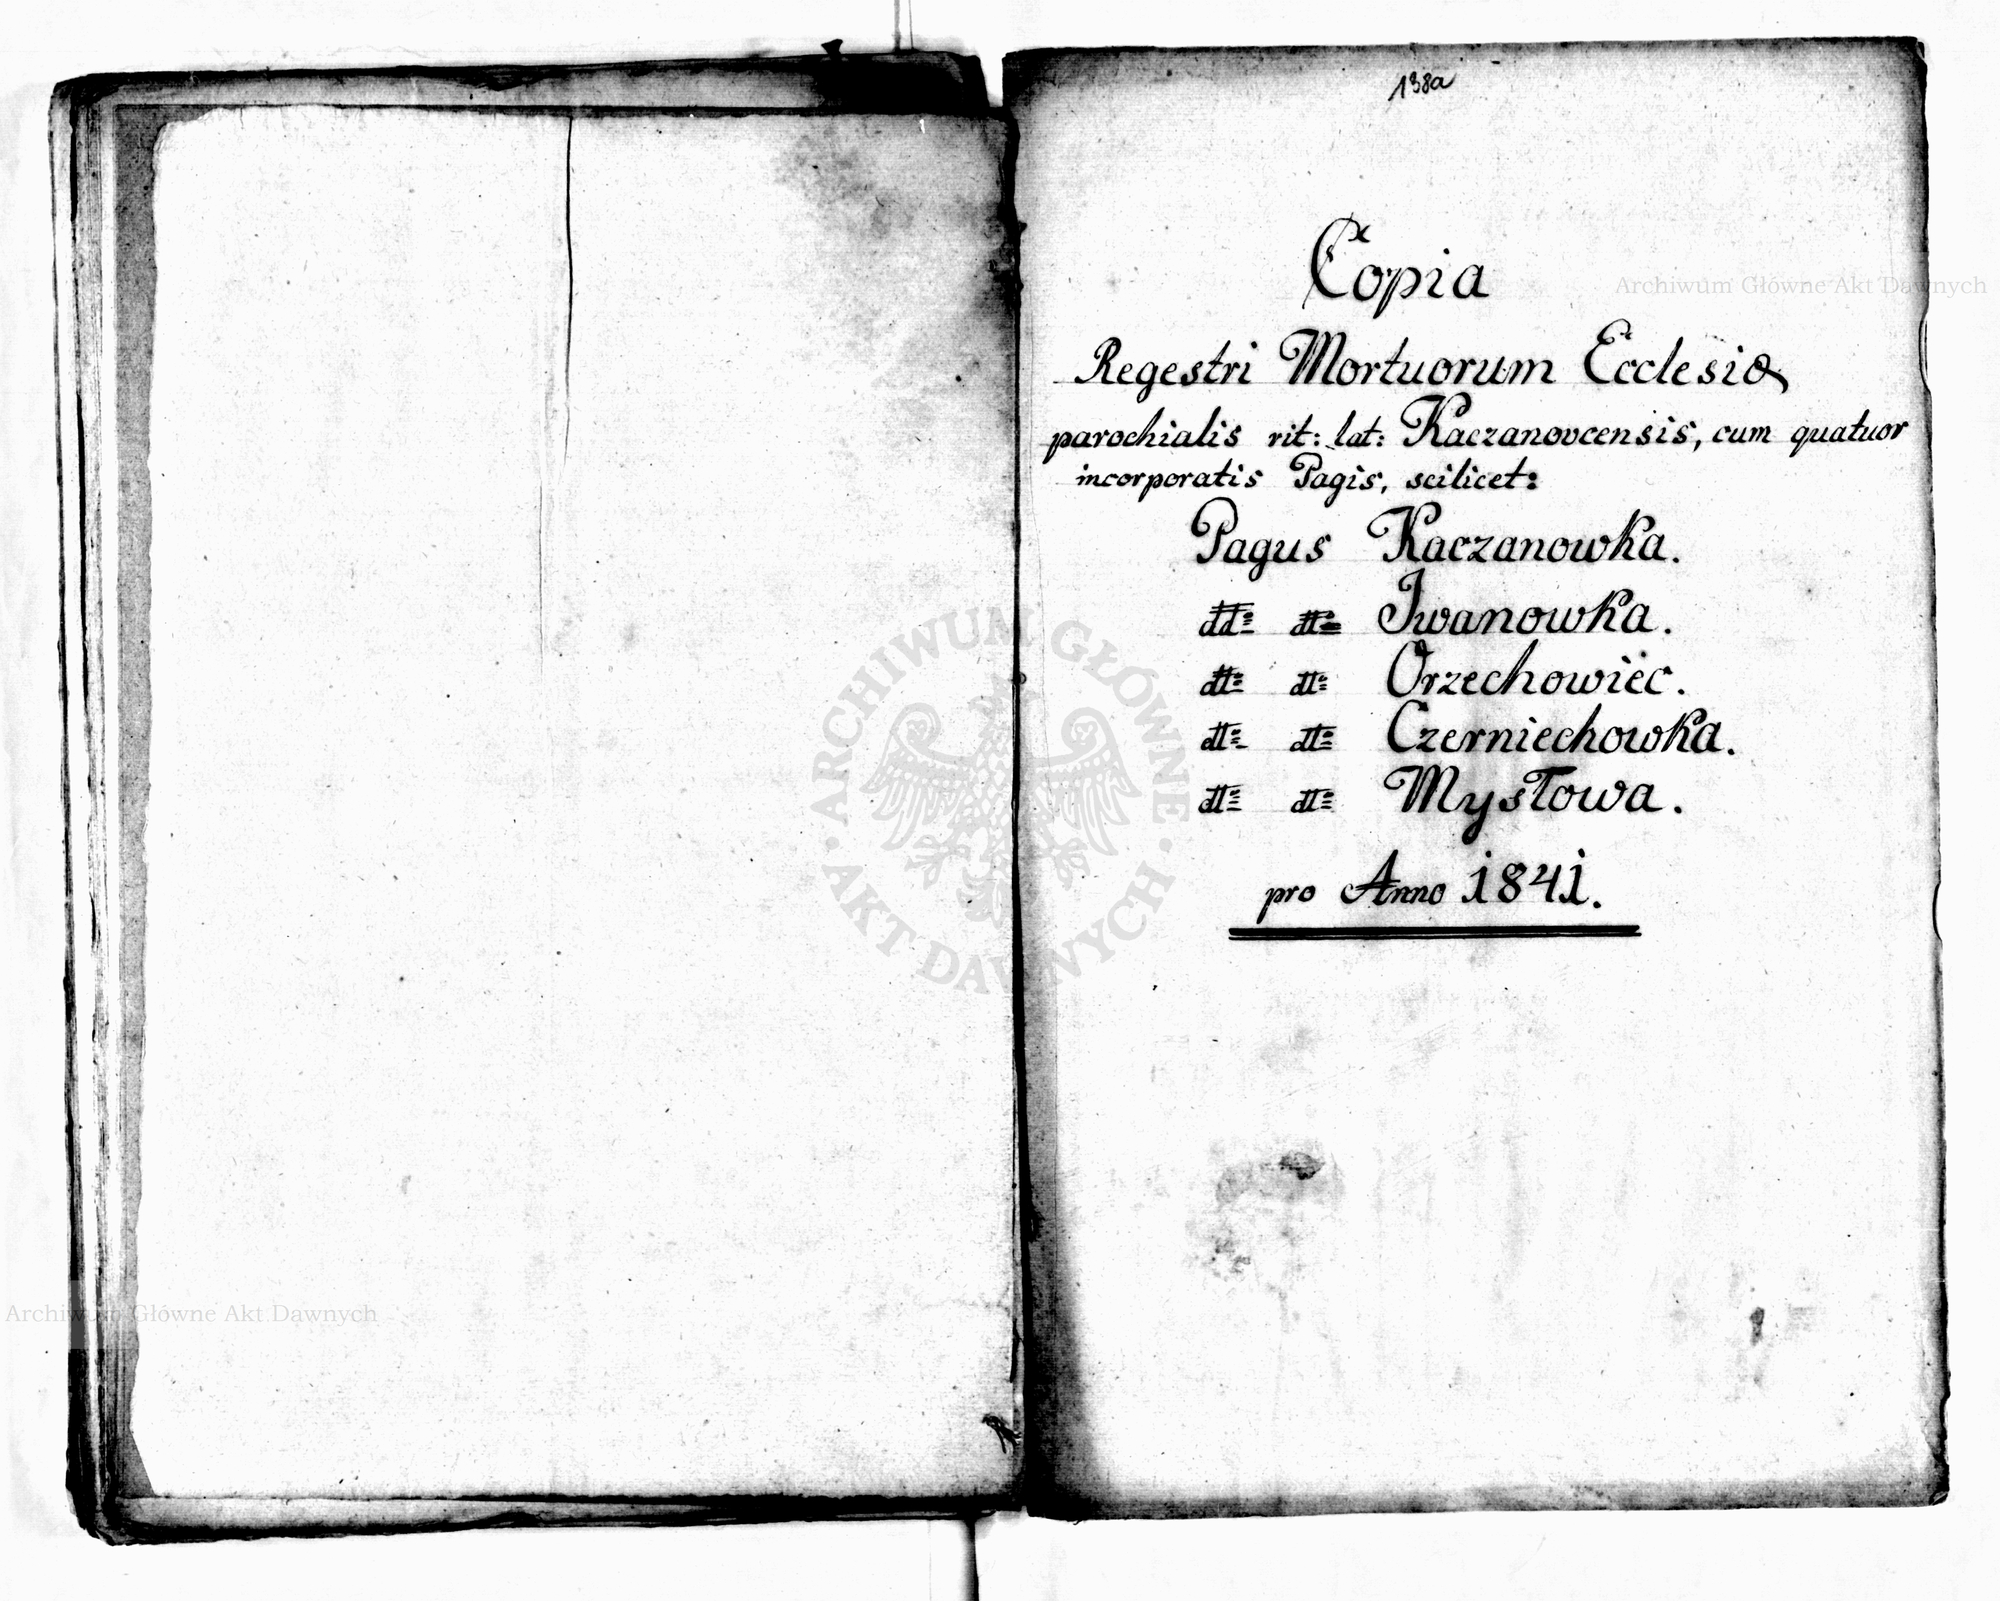 138a
Copia
Regestri Mortuorum Ecclesiæ
parochialis rit: lat: Kaczanovcensis, cum quatuor
incorporatis Pagis, scilicet:
Pagus Kaczanowka.
dtto dtto Iwanowka.
dtto dtto Orzechowiec.
dtto dtto Czerniechowka.
dtto dtto Mysłowa.
pro Anno 1841.
Archiwum Główne Akt Dawnych
ARCHIWUM GŁÓWNE · AKT DAWNYCH ·
Archiwum Główne Akt Dawnych